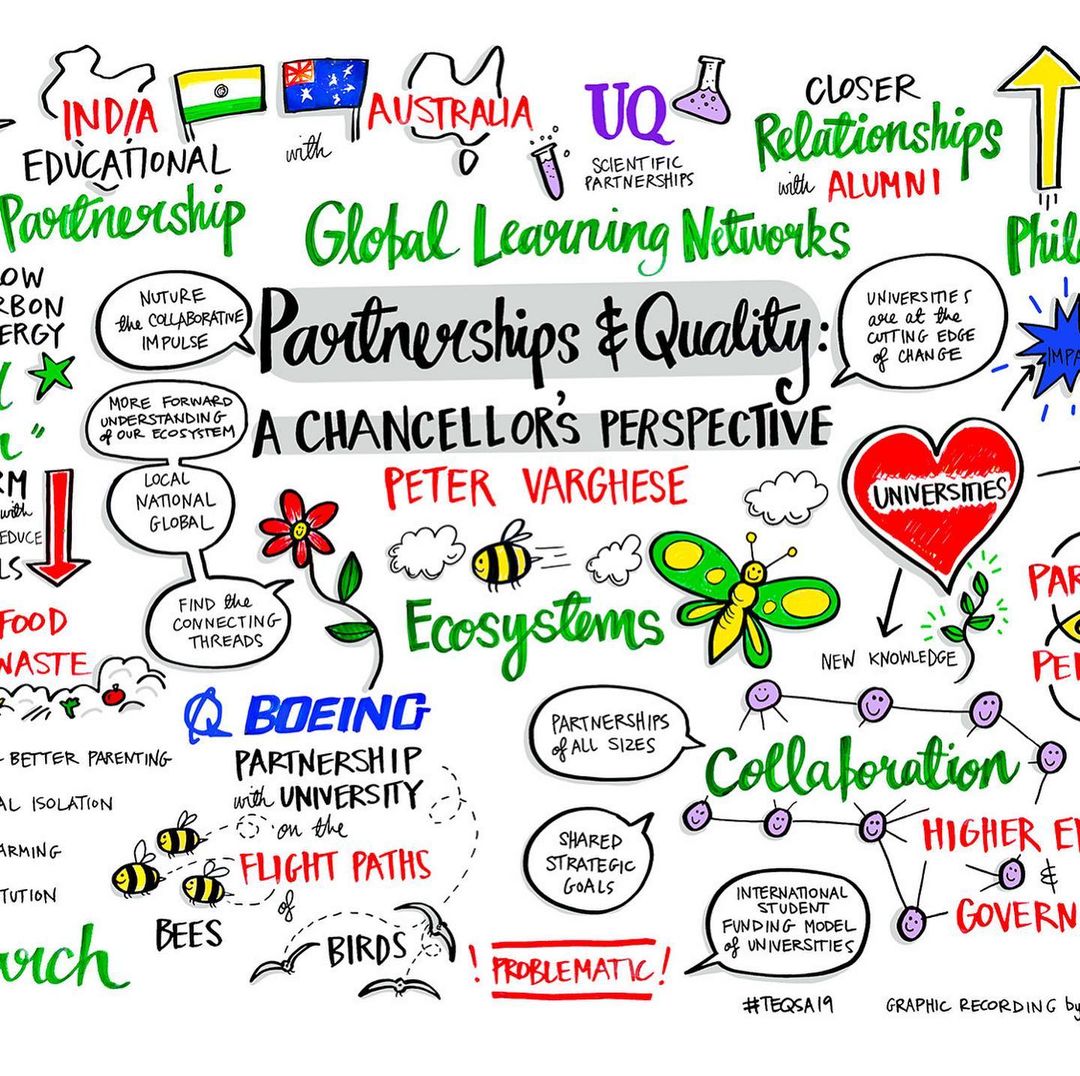 INDIA
EDUCATIONAL
Partnership
with
AUSTRALIA
UQ
SCIENTIFIC
PARTNERSHIPS
CLOSER
Relationships
with ALUMNI
Global Learning Networks
Phil
OW
RBON
ERGY
NUTURE
the COLLABORATIVE
IMPULSE
Partnerships & Quality:
A CHANCELLOR'S PERSPECTIVE
PETER VARGHESE
UNIVERSITIES
are at the
CUTTING EDGE
of CHANGE
IMPA
MORE FORWARD
UNDERSTANDING
of OUR ECOSYSTEM
LOCAL
NATIONAL
GLOBAL
FIND the
CONNECTING
THREADS
RM
with
EDUCE
LS
FOOD
WASTE
Ecosystems
UNIVERSITIES
NEW KNOWLEDGE
PAR
PE
BETTER PARENTING
AL ISOLATION
ARMING
TUTION
arch
BOEING
PARTNERSHIP
with UNIVERSITY
on the
FLIGHT PATHS
of
BEES
BIRDS
PARTNERSHIPS
of ALL SIZES
Collaboration
SHARED
STRATEGIC
GOALS
HIGHER E
&
GOVERN
INTERNATIONAL
STUDENT
FUNDING MODEL
of UNIVERSITIES
! PROBLEMATIC !
#TEQSA19
GRAPHIC RECORDING by